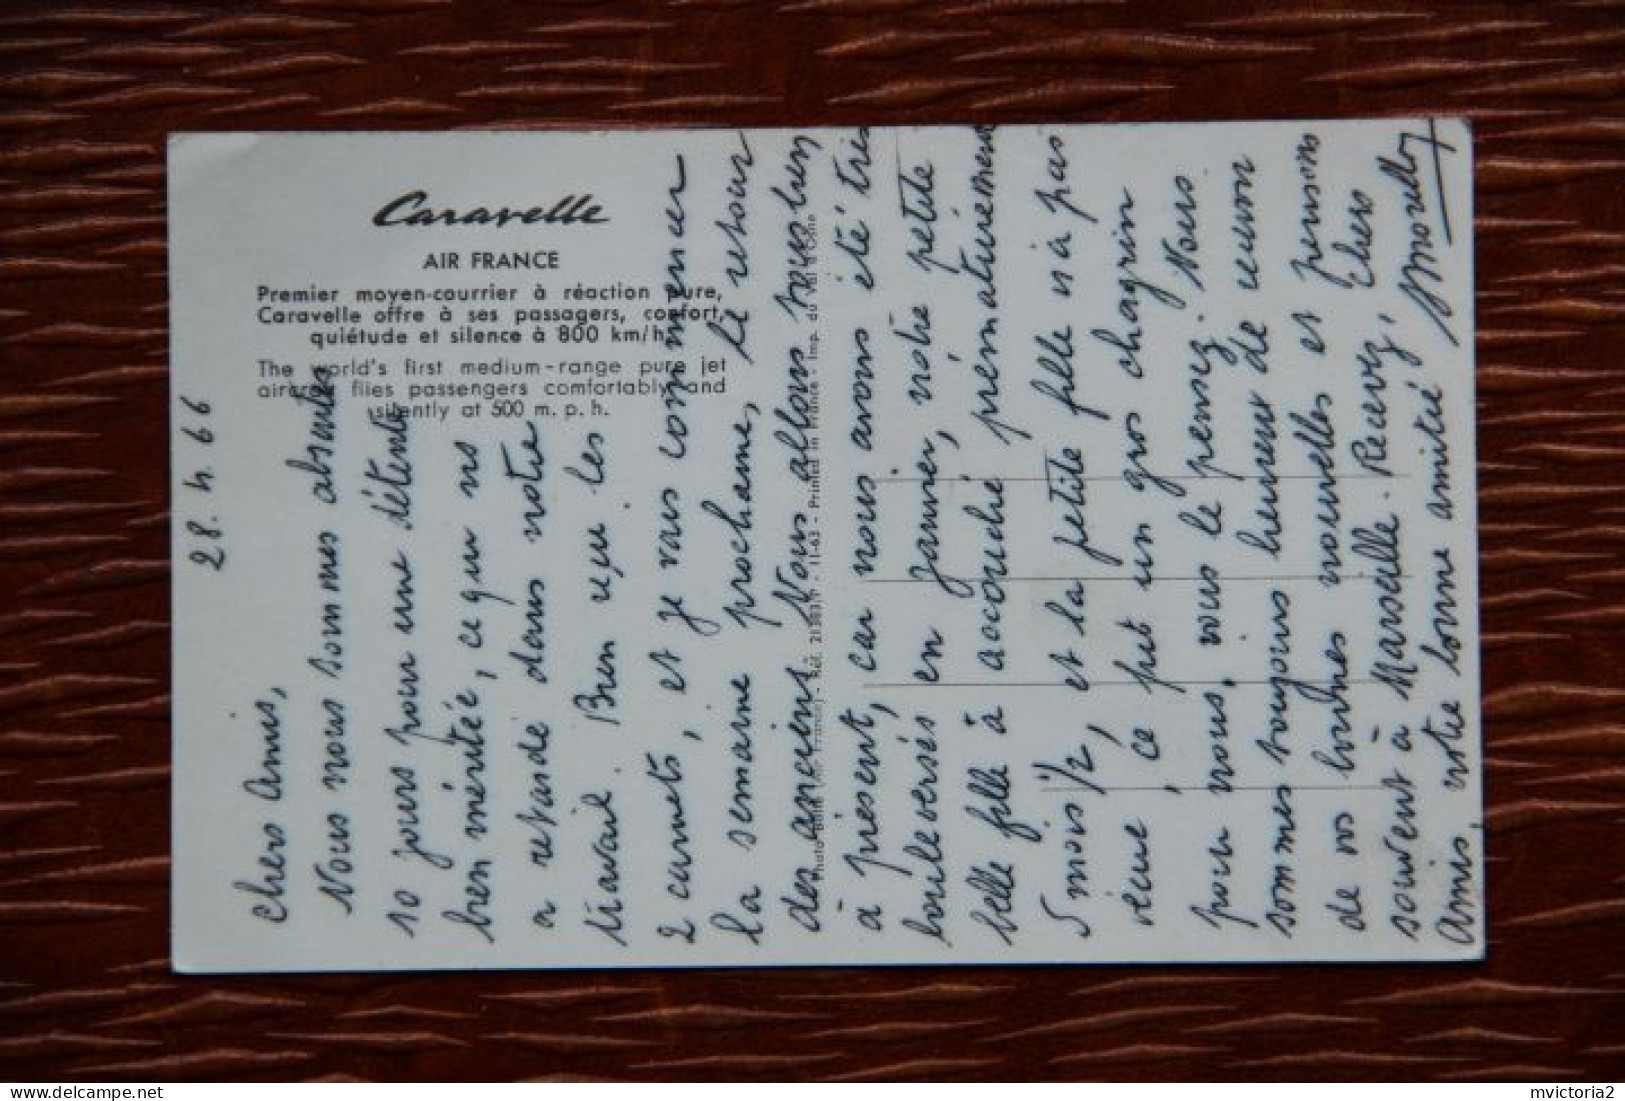 Caravelle
AIR FRANCE
Premier moyen-courrier à réaction pure,
Caravelle offre à ses passagers, confort,
quiétude et silence à 800 km/h.
The world's first medium-range pure jet
aircraft flies passengers comfortably and
silently at 500 m. p. h.
28. 4. 66
Chers Amis,
Nous nous sommes absentés
10 jours pour une détente
bien méritée, ce qui ns
a retardé dans notre
travail. Bien reçu les
2 carnets, et je vais commencer
la semaine prochaine, le retour
des anciens. Nous allons tous bien
à présent, car nous avons été très
bouleversés en Janvier, notre petite
belle fille à accouché prématurément
5 mois 1/2, et la petite fille n'a pas
vécue, ce fut un gros chagrin
pour nous, vous le pensez. Nous
sommes toujours heureux de
de vos bonnes nouvelles et pensons
souvent à Marseille. Recevez, Chers
Amis, notre bonne amitié
Printed in France - Imp. du Val d'Osne
11-63